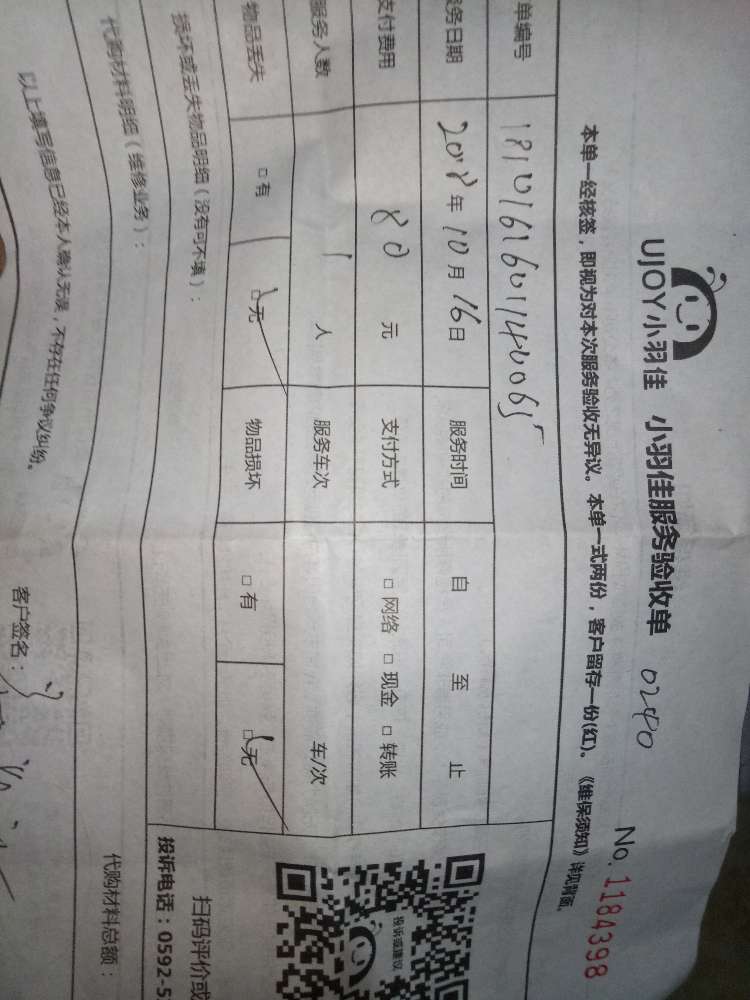 UJOY小羽佳 小羽佳服务验收单 0240
No. 1184398
本单一经核签，即视为对本次服务验收无异议。本单一式两份，客户留存一份(红)。《维保须知》详见背面。
单编号 1810161601140065
务日期 2018年10月16日 服务时间 自 至 止
支付费用 80元 支付方式 □网络 □现金 □转账
服务人数 1人 服务车次 车/次
物品丢失 □有 □无 物品损坏 □有 □无
损坏或丢失物品明细（没有可不填）：
代购材料明细（维修业务）： 代购材料总额：
以上填写信息已经本人确认无误，不存在任何争议纠纷。
客户签名：
投诉或建议
扫码评价或
投诉电话：0592-5